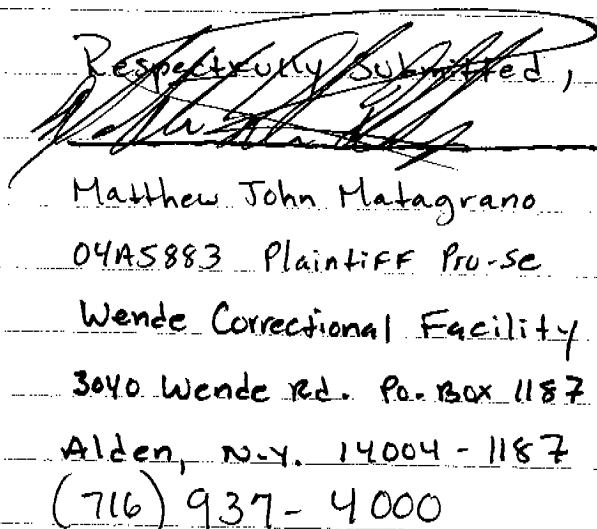 Respectfully Submitted,
Matthew John Matagrano
04A5883 Plaintiff Pro-se
Wende Correctional Facility
3040 Wende Rd. Po. Box 1187
Alden, N.Y. 14004-1187
(716) 937-4000